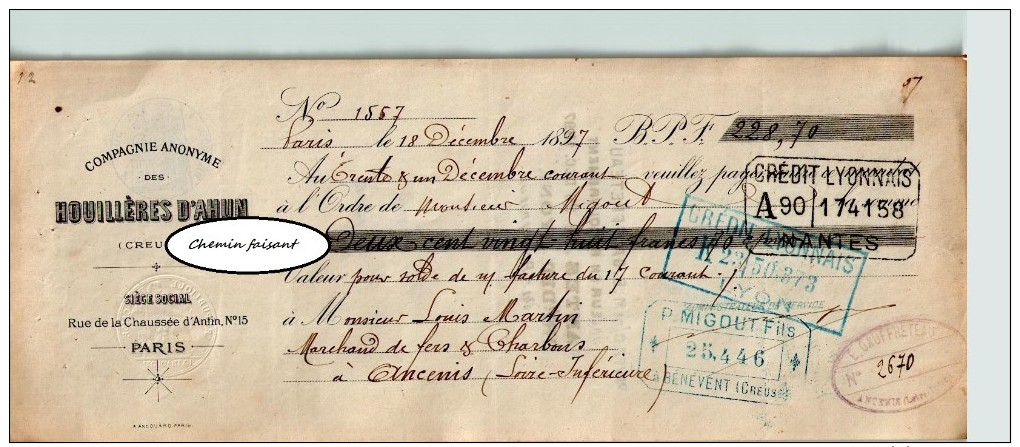 12
07
COMPAGNIE ANONYME
DES
HOUILLÈRES D'AHUN
(CREUS
Chemin faisant
SIÈGE SOCIAL
Rue de la Chaussée d'Antin, No 15
PARIS
No 1557
Paris le 18 Décembre 1897 B.P.F. 228,70
Au Trente & un Décembre courant veuillez payer
à l'Ordre de Monsieur Migout
Deux cent vingt huit francs 70
Valeur pour solde de m/ facture du 17 courant
à Monsieur Louis Martin
Marchand de fers & Charbons
à Ancenis (Loire-Inférieure)
CRÉDIT LYONNAIS
A 90 174158
NANTES
CRÉDIT LYONNAIS
LYON
P. MIGOUT Fils
25.446
BÉNÉVENT (CREUSE)
No 2670
ANCENIS